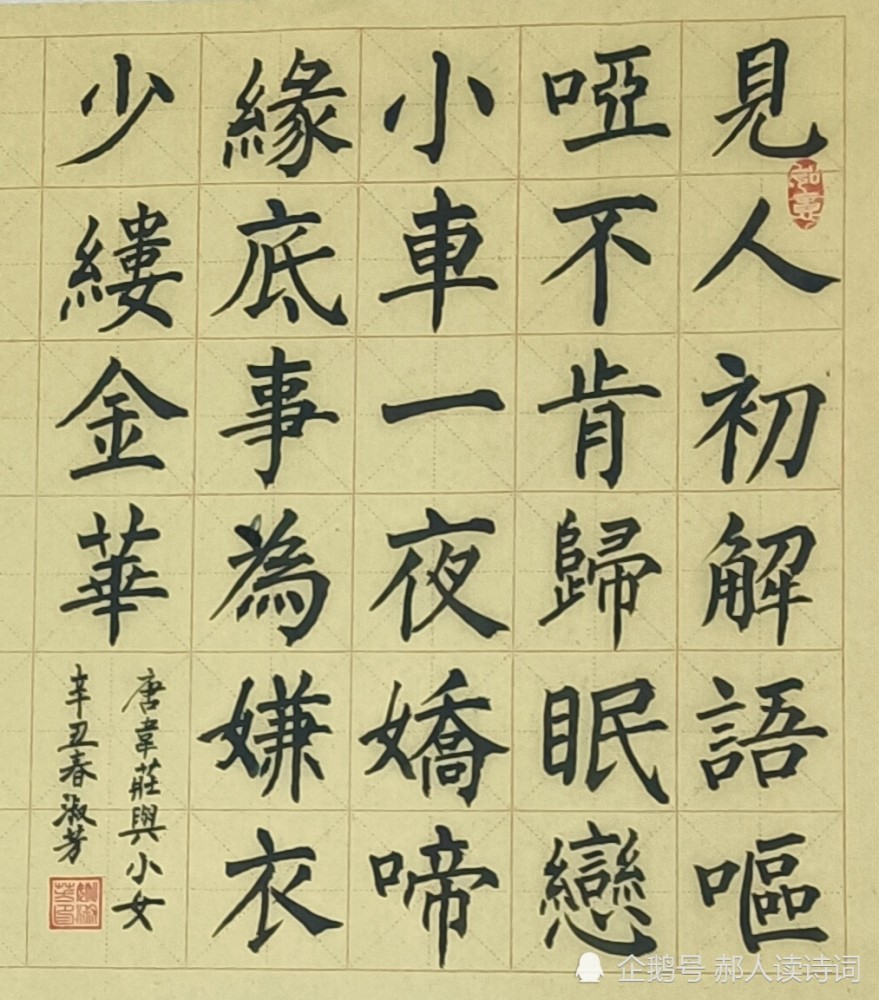 見人初解語嘔
啞不肯歸眠戀
小車一夜嬌啼
緣底事為嫌衣
少縷金華
唐韋莊與小女
辛丑春淑芳
企鹅号 郝人读诗词